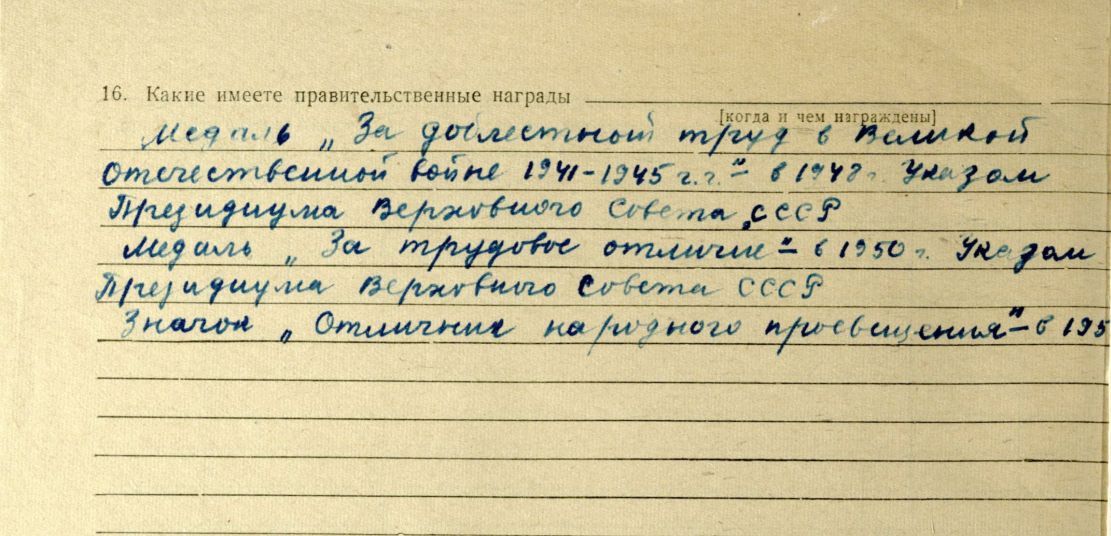 16. Какие имеете правительственные награды
[когда и чем награждены]
Медаль „За доблестный труд в Великой
Отечественной войне 1941-1945 г.г." - в 1948 г. Указом
Президиума Верховного Совета СССР
Медаль „За трудовое отличие" - в 1950 г. Указом
Президиума Верховного Совета СССР
Значок „Отличник народного просвещения" - в 195